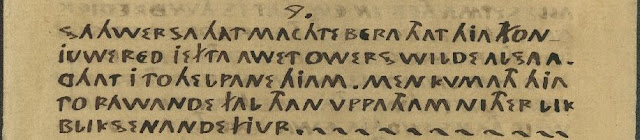 9.
SAHWERSA HAT MACHTE BERA THAT HIA FON
IUWE RED IEFTA AWET OWERS WILDE ALSA A-
GHAT I TO HELPANE HIAM. MEN KUMATH HIA
TO RAWANDE FAL THAN UPPA THAM NITHER LIK
BLIKSENANDE FIUR.